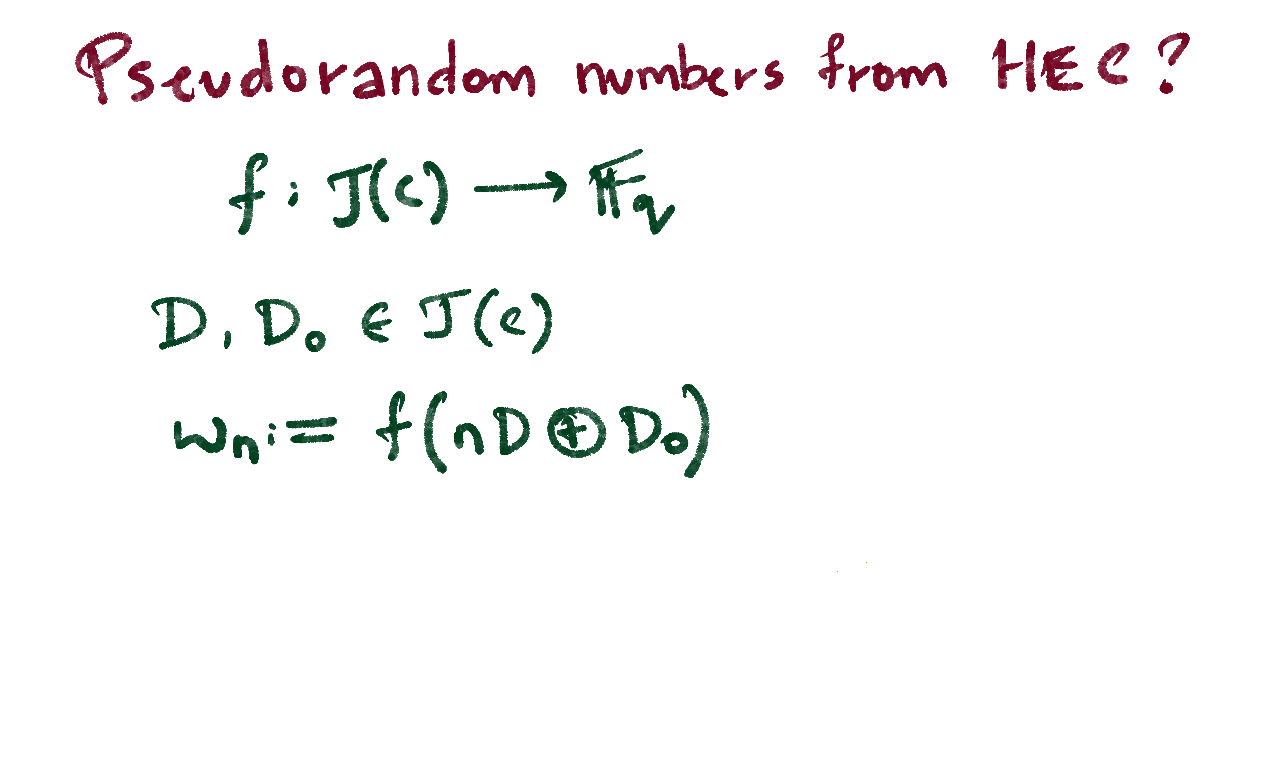 Pseudorandom numbers from HEC?
f: J(C) → 𝔽q
D, D₀ ∈ J(C)
wₙ := f(nD ⊕ D₀)